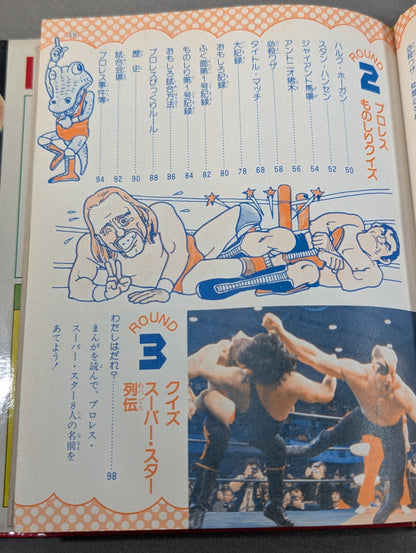 ROUND
2 プロレス
ものしりクイズ
ハルク・ホーガン 50
スタン・ハンセン 52
ジャイアント馬場 54
アントニオ猪木 56
必殺ワザ 58
タイトル・マッチ 68
大記録 78
おもしろ記録 80
ふく面第1号記録 82
ものしり第1号記録 84
おもしろ試合方法 86
プロレスびっくりルール 88
歴史 90
試合会場 92
プロレス事件簿 94
ROUND
3 クイズ
スーパー・スター
列伝
れつでん
わたしはだれ? 98
まんがを読んで、プロレス・
スーパー・スター8人の名前を
あてよう!